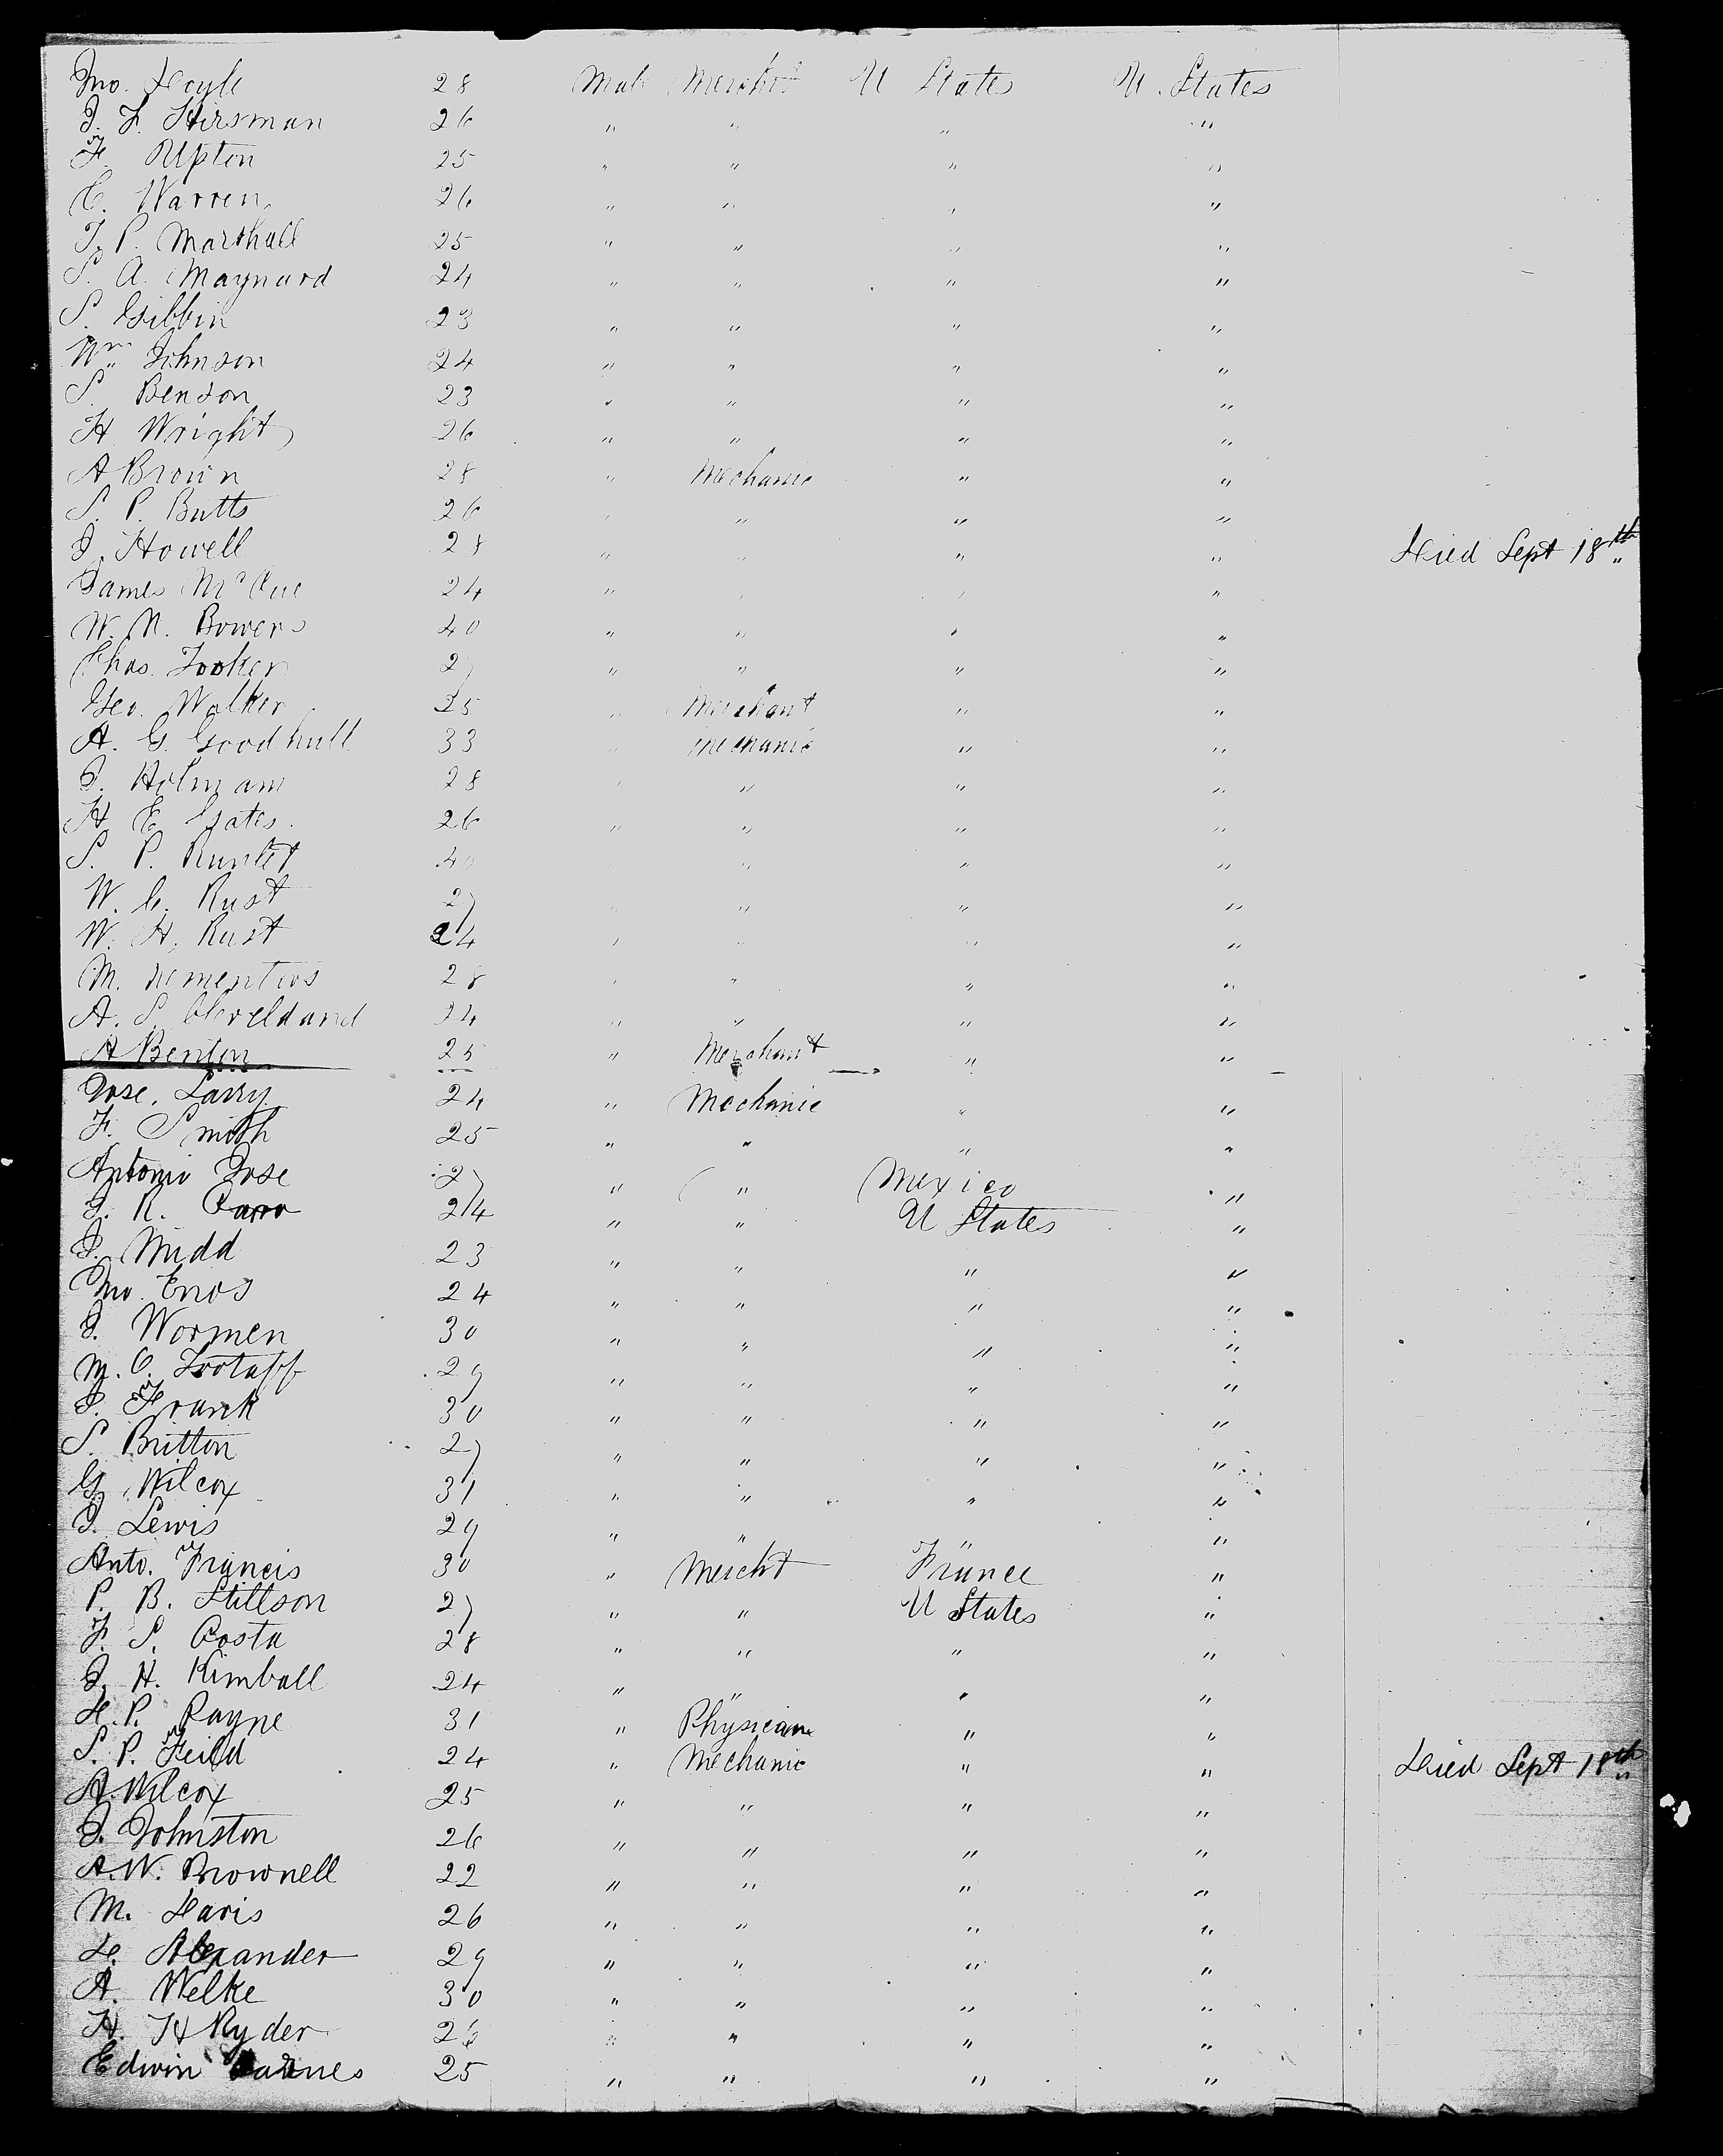 Jno. Doyle 28 Male Mercht U States U. States
J. F. Hirsman 26 " " " "
F. Upton 25 " " " "
E. Warren 26 " " " "
J. P. Marshall 25 " " " "
S. A. Maynard 24 " " " "
S. Gibbin 23 " " " "
Wm Johnson 24 " " " "
S. Benson 23 " " " "
H Wright 26 " " " "
A Brown 28 " Mechanic " "
S. P. Butts 26 " " " "
J. Howell 28 " " " " Died Sept 18th
James McCue 24 " " " "
W. N. Bowers 40 " " " "
Chas. Tooker 27 " " " "
Geo. Walker 35 " Merchant " "
A. G. Goodhull 33 " Mechanic " "
J. Holmam 28 " " " "
H E Gates 26 " " " "
S. P. Runlet 40 " " " "
W. C. Rust 27 " " " "
W. H. Rust 24 " " " "
M. 28 " " " "
A. S. Cleveldand 24 " " " "
A Benton 25 " Merchant " "
Jose. Larry 24 " Mechanic " "
F. Smith 25 " " " "
Antonio Jose 27 " " Mexico "
J. R. 24 " " U States "
J. Mudd 23 " " " "
Jno. Enos 24 " " " "
J. Wormen 30 " " " "
M. C. 29 " " " "
J. Frank 30 " " " "
S. Britton 27 " " " "
G. Wilcox 31 " " " "
J. Lewis 29 " " " "
Anto. Francis 30 " Mercht France "
P. B. Stillson 27 " " U States "
F. S. Costa 28 " " " "
J. H. Kimball 24 " " " "
D. P. Payne 31 " Physician " "
S. P. Feild 24 " Mechanic " " Died Sept 18th
A. Wilcox 25 " " " "
J. Johnston 26 " " " "
A. W. Brownell 22 " " " "
M. Davis 26 " " " "
D. Alexander 29 " " " "
A. Welke 30 " " " "
H. H Ryder 26 " " " "
Edwin Barnes 25 " " " "